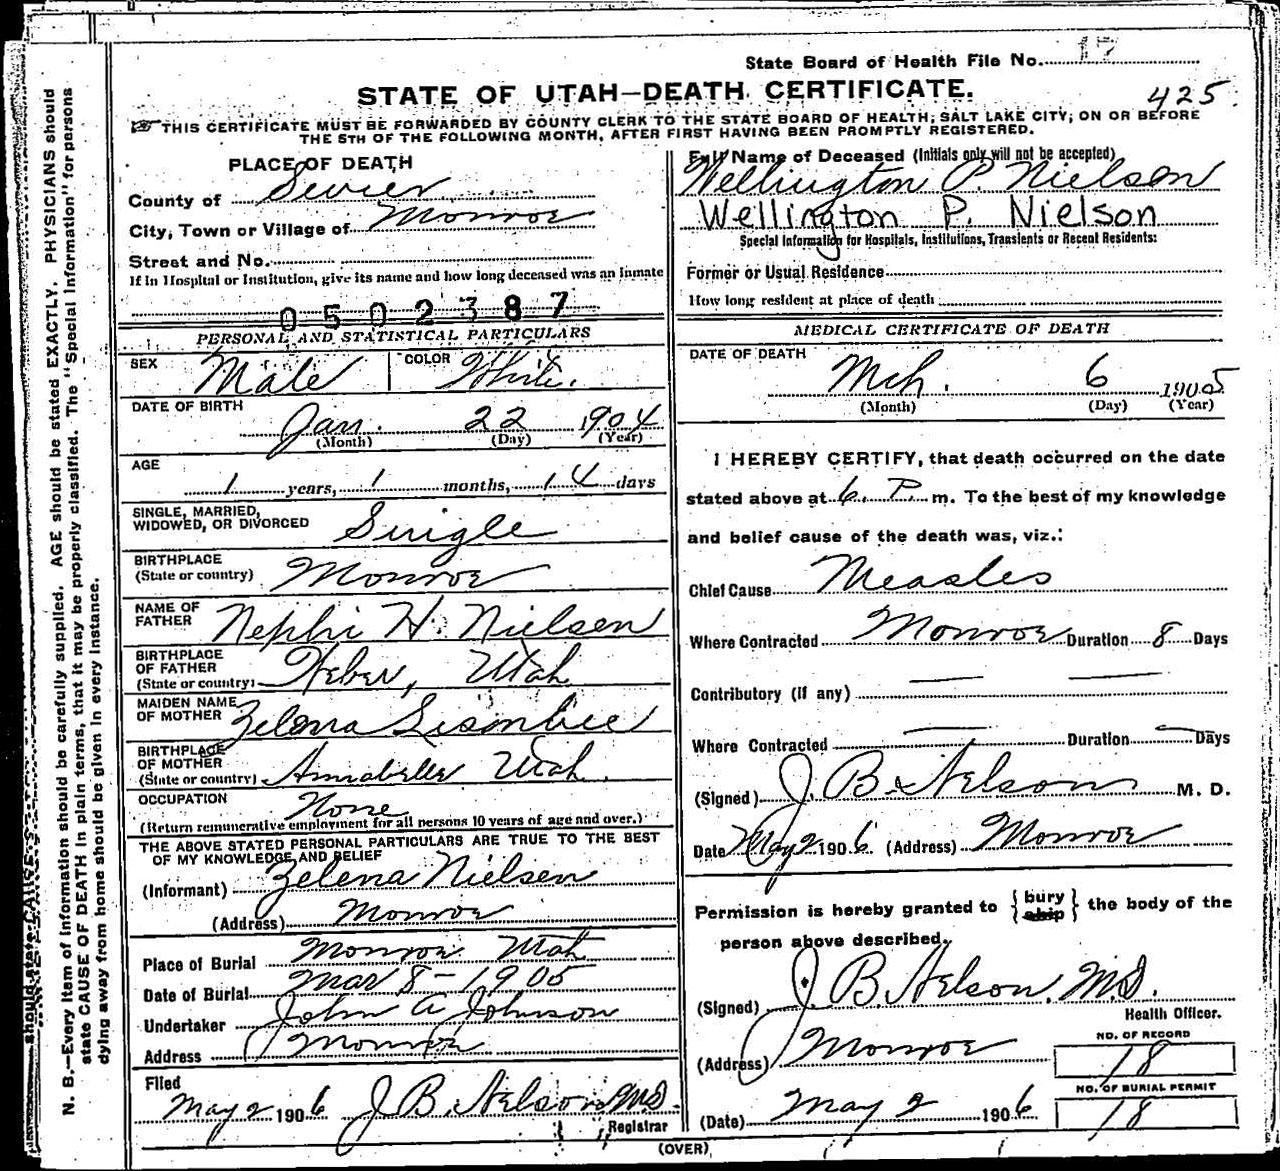 State Board of Health File No. 17
STATE OF UTAH—DEATH CERTIFICATE.
425.
THIS CERTIFICATE MUST BE FORWARDED BY COUNTY CLERK TO THE STATE BOARD OF HEALTH, SALT LAKE CITY, ON OR BEFORE
THE 5TH OF THE FOLLOWING MONTH, AFTER FIRST HAVING BEEN PROMPTLY REGISTERED.
PLACE OF DEATH
County of Sevier
City, Town or Village of Monroe
Street and No.
If in Hospital or Institution, give its name and how long deceased was an inmate
0502387
PERSONAL AND STATISTICAL PARTICULARS
SEX Male COLOR White.
DATE OF BIRTH
Jan. 22 1904
(Month) (Day) (Year)
AGE
1 years, 1 months, 14 days
SINGLE, MARRIED,
WIDOWED, OR DIVORCED Single
BIRTHPLACE
(State or country) Monroe
NAME OF
FATHER Nephi H. Nielsen
BIRTHPLACE
OF FATHER
(State or country) Heber, Utah
MAIDEN NAME
OF MOTHER Zelena
BIRTHPLACE
OF MOTHER
(State or country) Annabella Utah.
OCCUPATION None
(Return remunerative employment for all persons 10 years of age and over.)
THE ABOVE STATED PERSONAL PARTICULARS ARE TRUE TO THE BEST
OF MY KNOWLEDGE AND BELIEF
(Informant) Zelena Nielsen
(Address) Monroe
Place of Burial Monroe Utah
Date of Burial Mar 8-1905
Undertaker John A Johnson
Address Monroe
Filed
May 2 1906 J B. Nelson M.D.
Registrar
Full Name of Deceased (Initials only will not be accepted)
Wellington P. Nielsen
Wellington P. Nielson
Special Information for Hospitals, Institutions, Transients or Recent Residents:
Former or Usual Residence
How long resident at place of death
MEDICAL CERTIFICATE OF DEATH
DATE OF DEATH
Mch. 6 1905
(Month) (Day) (Year)
I HEREBY CERTIFY, that death occurred on the date
stated above at 6. P. m. To the best of my knowledge
and belief cause of the death was, viz.:
Chief Cause Measles
Where Contracted Monroe Duration 8 Days
Contributory (if any)
Where Contracted Duration Days
(Signed) J. B. Nelson M. D.
Date May 2 1906. (Address) Monroe
Permission is hereby granted to { bury ship } the body of the
person above described.
(Signed) J. B. Nelson. M.D.
Health Officer.
(Address) Monroe
NO. OF RECORD
18
NO. OF BURIAL PERMIT
18
(Date) May 2 1906
(OVER)
N. B.—Every item of information should be carefully supplied. AGE should be stated EXACTLY. PHYSICIANS should
state CAUSE OF DEATH in plain terms, that it may be properly classified. The "Special Information" for persons
dying away from home should be given in every instance.